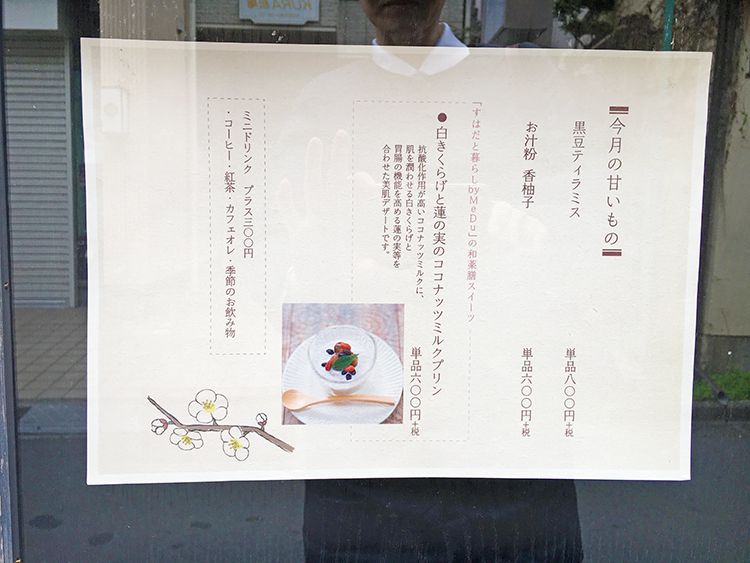 今月の甘いもの
黒豆ティラミス 単品八〇〇円+税
お汁粉 香柚子 単品六〇〇円+税
「すはだと暮らしbyMeDu」の和薬膳スイーツ
●白きくらげと蓮の実のココナッツミルクプリン
単品六〇〇円+税
抗酸化作用が高いココナッツミルクに、
肌を潤わせる白きくらげと
胃腸の機能を高める蓮の実等を
合わせた美肌デザートです。
ミニドリンク プラス三〇〇円
・コーヒー・紅茶・カフェオレ・季節のお飲み物